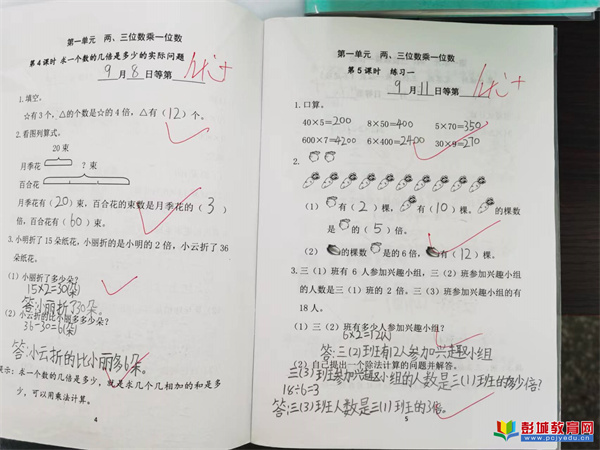 第一单元 两、三位数乘一位数
第4课时 求一个数的几倍是多少的实际问题
9月8日等第 优+
1.填空。
☆有3个,△的个数是☆的4倍,△有(12)个。
2.看图列算式。
20束
月季花
?束
百合花
月季花有(20)束,百合花的束数是月季花的(3)
倍,百合花有(60)束。
3.小明折了15朵纸花,小丽折的是小明的2倍,小云折了36
朵纸花。
(1)小丽折了多少朵?
15×2=30(朵)
答:小丽折了30朵。
(2)小云折的比小丽多多少朵?
36-30=6(朵)
答:小云折的比小丽多6朵。
提示:求一个数的几倍是多少,就是求几个几相加的和是多
少,可以用乘法计算。
4
第一单元 两、三位数乘一位数
第5课时 练习一
9月11日等第 优+
1.口算。
40×5=200 8×50=400 5×70=350
600×7=4200 6×400=2400 30×9=270
2.
(1) 有(2)棵, 有(10)棵, 的棵数
是 的(5)倍。
(2) 的棵数是 的6倍, 有(12)棵。
3.三(1)班有6人参加兴趣小组,三(2)班参加兴趣小组
的人数是三(1)班的2倍,三(3)班参加兴趣小组的有
18人。
(1)三(2)班有多少人参加兴趣小组?
6×2=12(人)
答:三(2)班有12人参加兴趣小组
(2)自己提出一个除法计算的问题并解答。
三(3)班参加兴趣小组的人数是三(1)班的多少倍?
18÷6=3
答:三(3)班人数是三(1)班的3倍。
5
彭城教育网
www.pcjyedu.cn